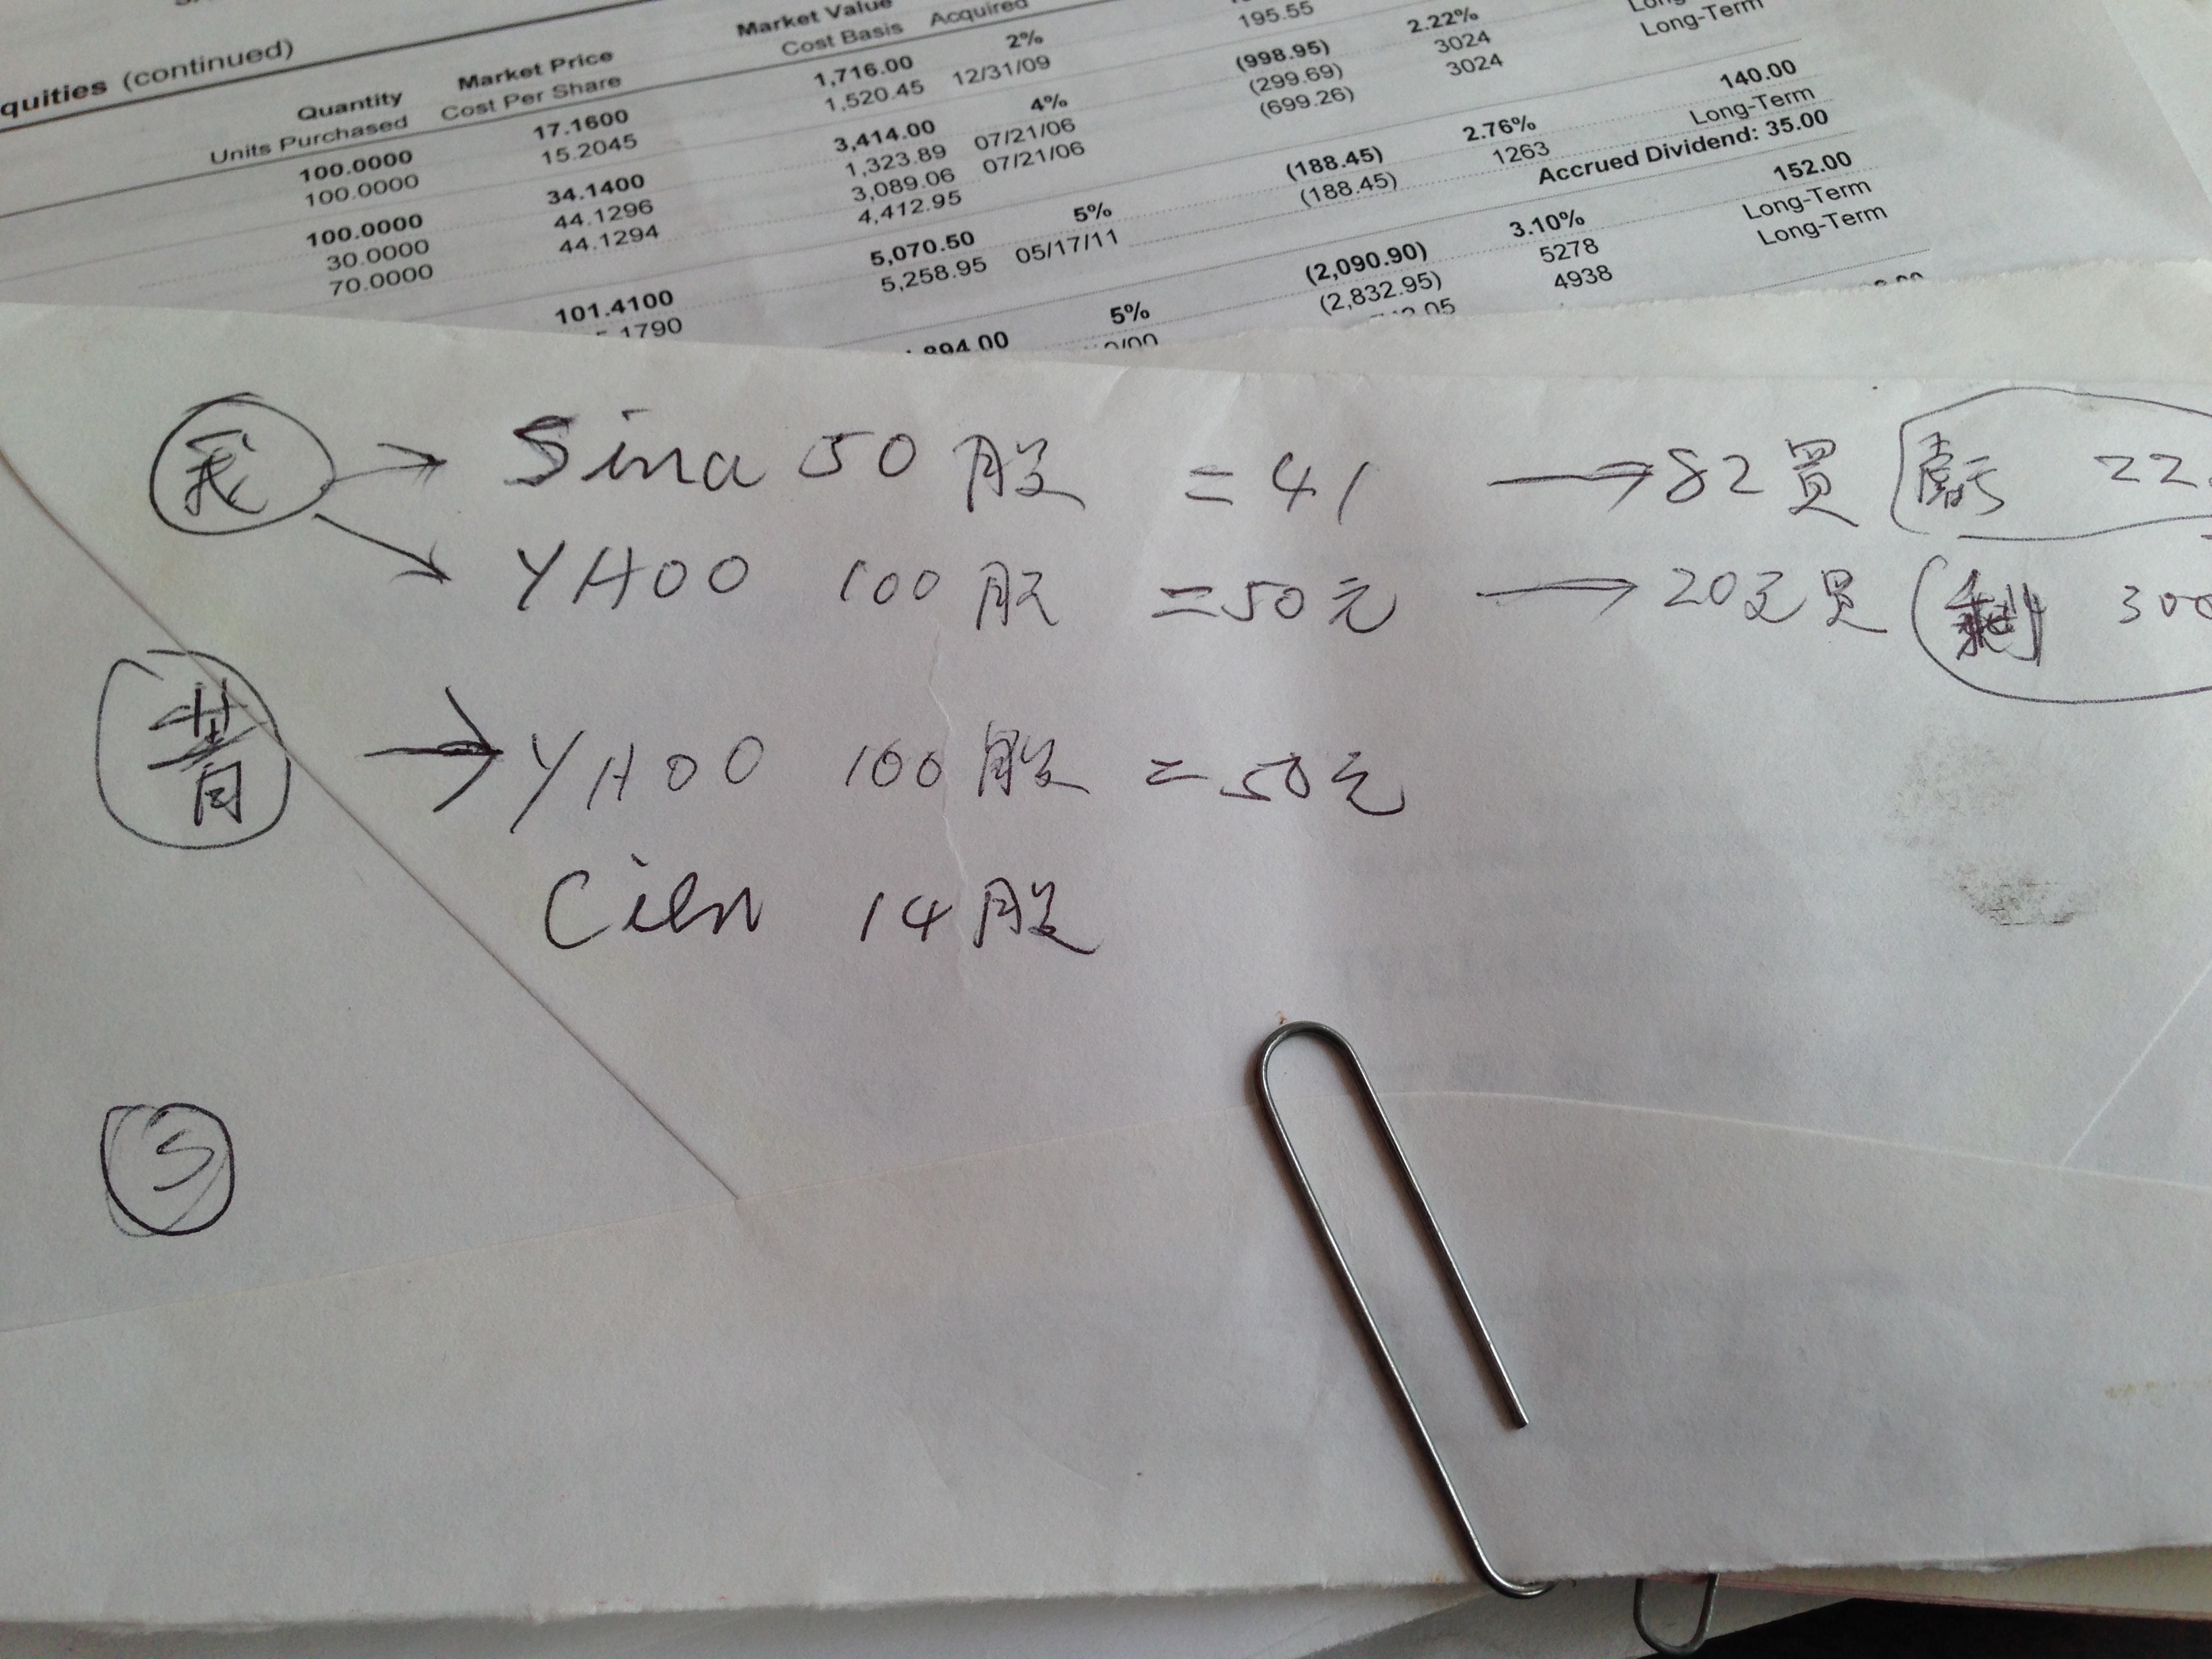 quities (continued)
Quantity Market Price Market Value
Units Purchased Cost Per Share Cost Basis Acquired
100.0000 17.1600 1,716.00 2% 195.55
100.0000 15.2045 1,520.45 12/31/09
100.0000 34.1400 3,414.00 4% (998.95) 2.22%
30.0000 44.1296 1,323.89 07/21/06 (299.69) 3024 Long-Term
70.0000 44.1294 3,089.06 07/21/06 (699.26) 3024 Long-Term
4,412.95
101.4100 5,070.50 5% (188.45) 2.76% 140.00
1790 5,258.95 05/17/11 (188.45) 1263 Long-Term
Accrued Dividend: 35.00
894.00 5% (2,090.90) 3.10% 152.00
(2,832.95) 5278 Long-Term
4938 Long-Term
我 → Sina 50股 = 41 → 82買 虧 22
→ YHOO 100股 = 50元 → 20元買 剩 300
→ YHOO 100股 = 50元
Cien 14股
S